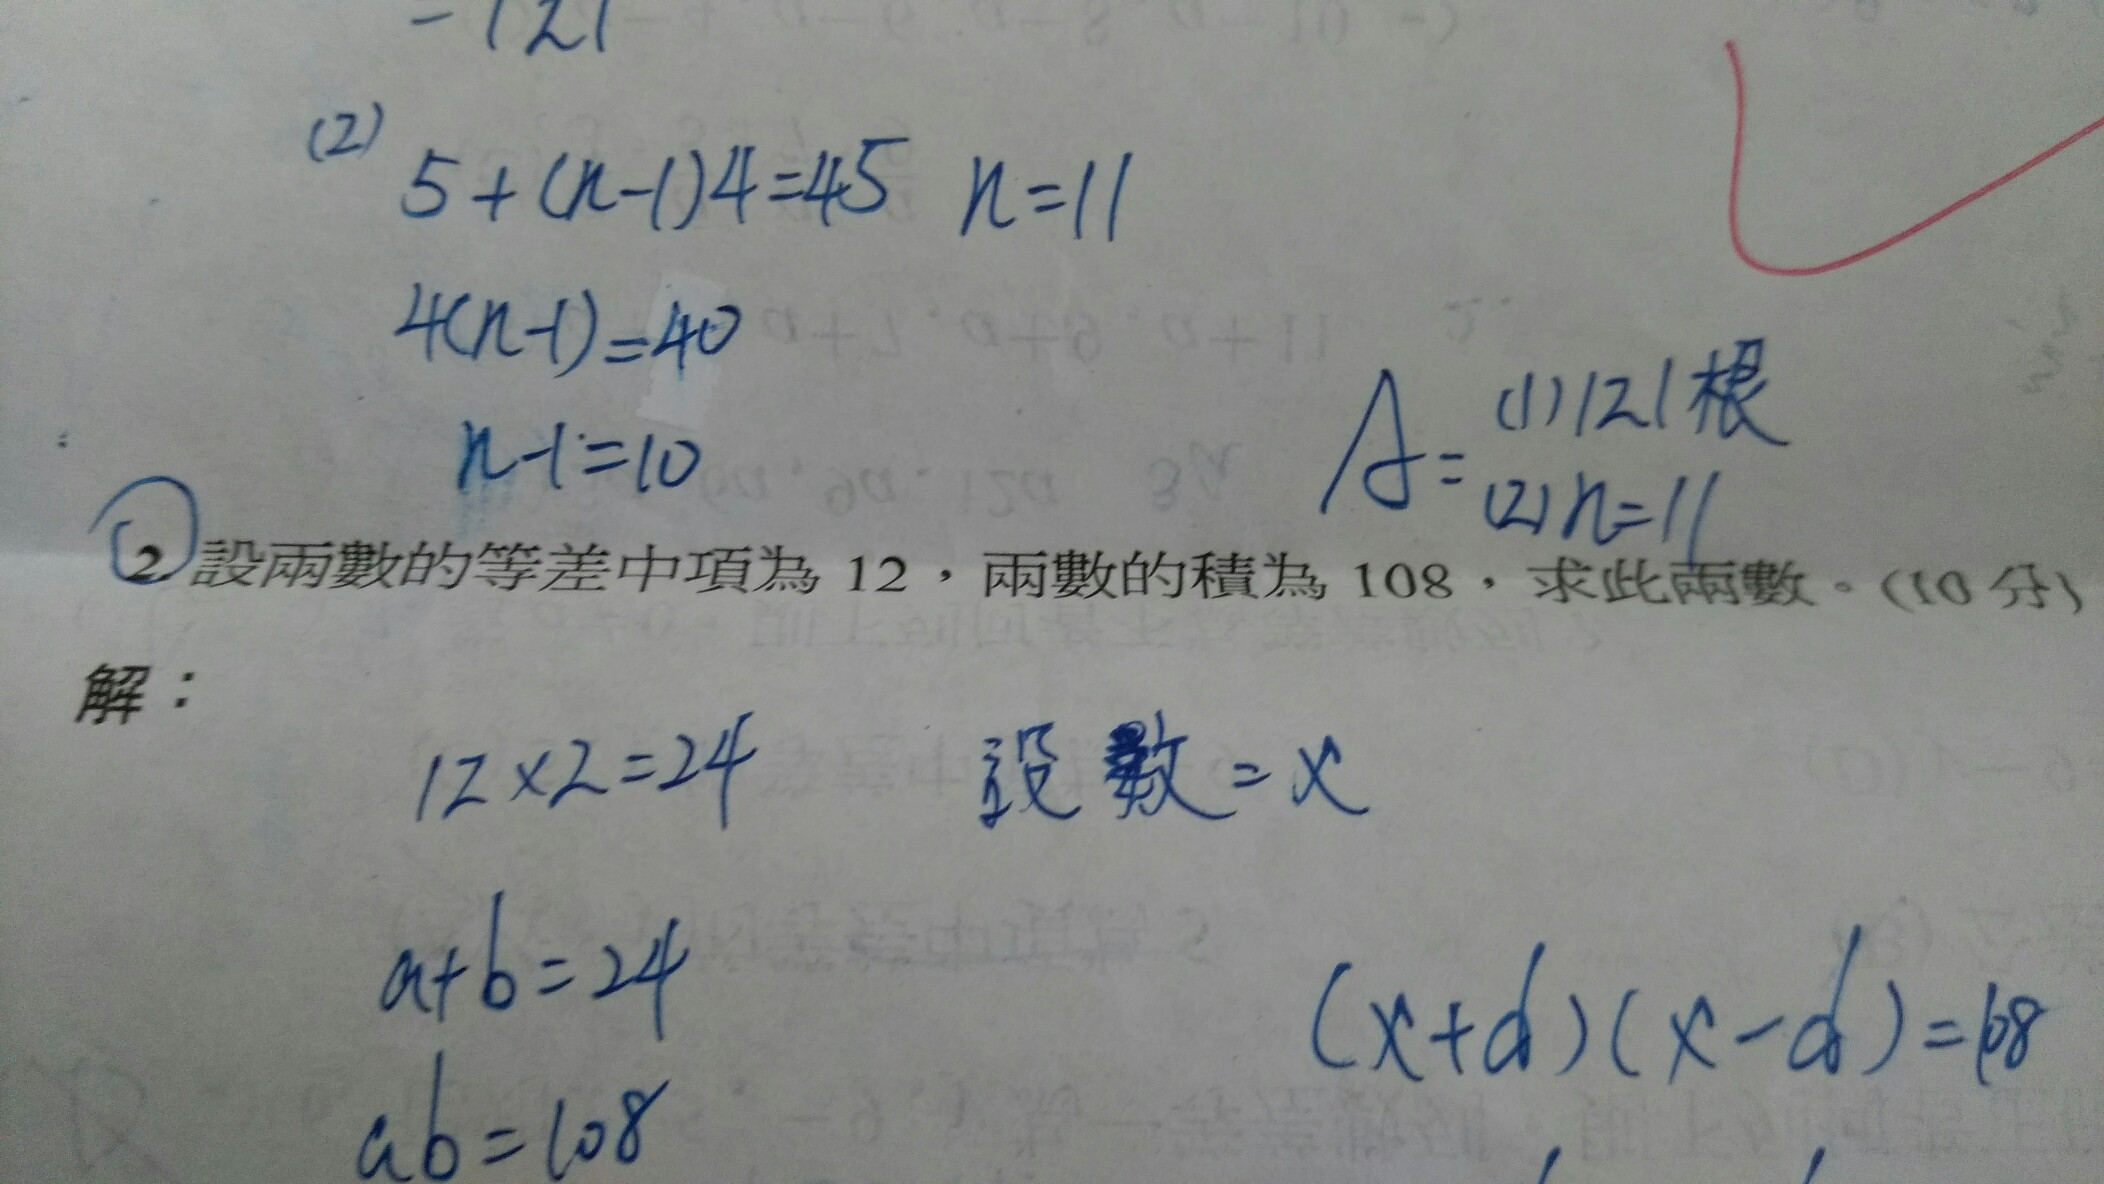 =121
(2) 5+(n-1)4=45 n=11
4(n-1)=40
n-1=10
A= (1)121根
(2)n=11
2. 設兩數的等差中項為 12，兩數的積為 108，求此兩數。(10 分)
解：
12×2=24 設數=x
a+b=24
(x+d)(x-d)=108
ab=108